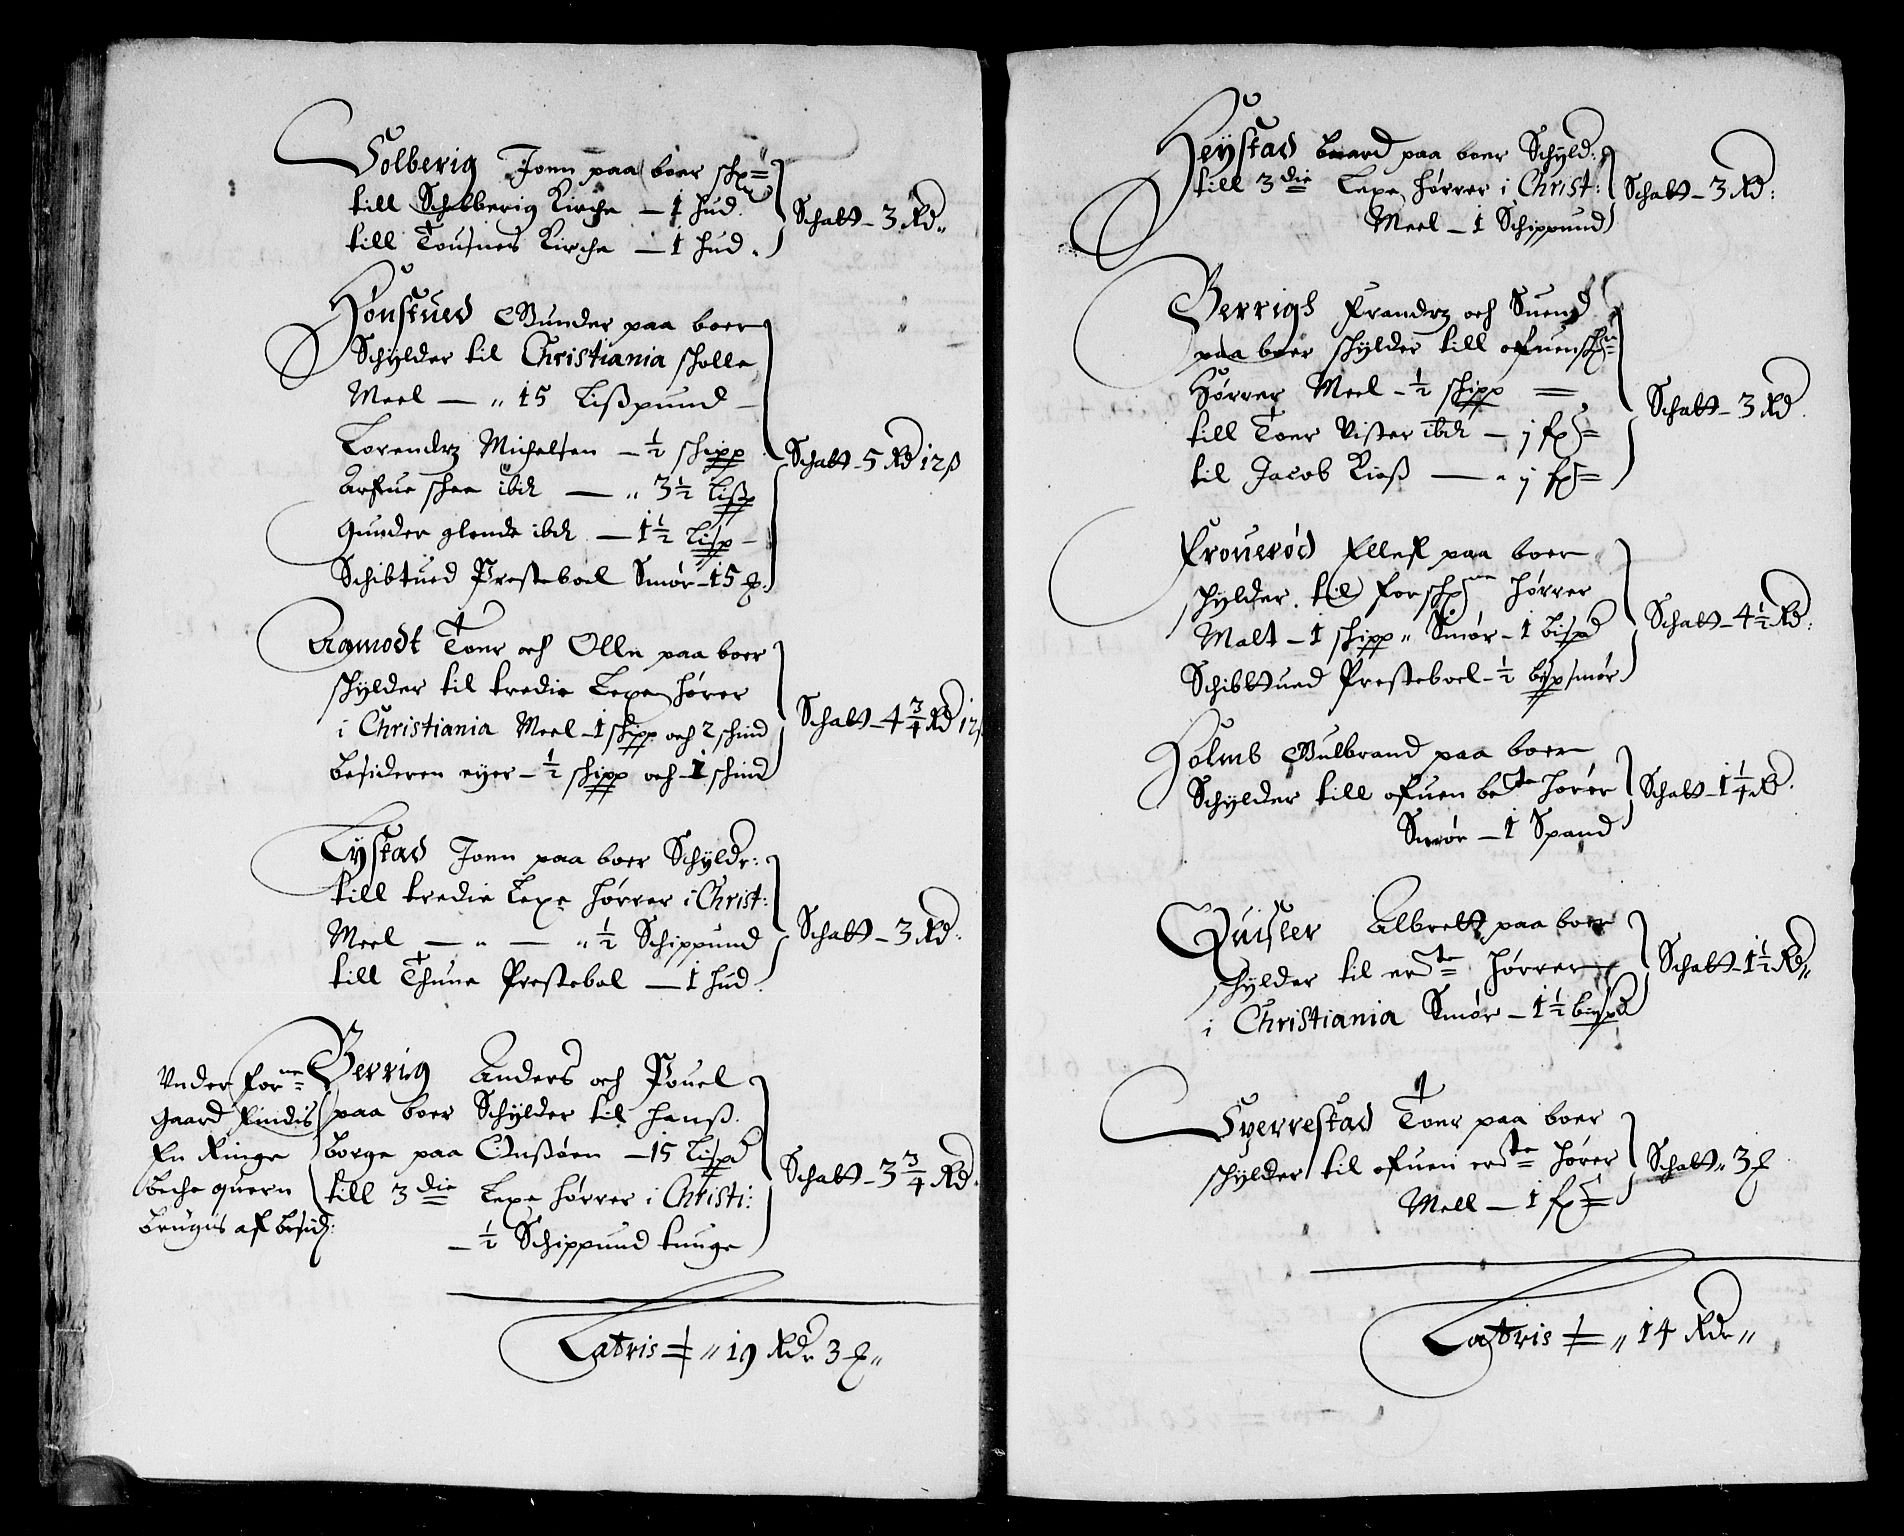 Solberig Joen paa boer schr:
till Schibberig Kirche — 1 hud.
till Tousnes Kirche — 1 hud.
Schatt – 3 Rd„
Honstued Gunder paa boer
Schylder til Christiania scholle
Meel — „ 15 Lißpund —
Lorendtz Michelsen – ½ schipp
Arfue schee ibd — „ 3½ Lißp
Gunder glende ibd. — 1½ Lisp –
Schibtued Presteboel Smør – 15 ₰.
Schatt – 5 Rd 12 ß
Aamodt Toer och Olle paa boer
schylder til tredie Lexe hører
i Christiania Meel – 1 schipp och 2 schind
besideren eyer – ½ schipp och – 1 schind
Schatt – 4 ¾ Rd 12
Lystad Joen paa boer Schyldr:
till tredie Lexe hørrer i Christ:
Meel — „ — „ ½ Schippund
till Thune Prestebol — 1 hud.
Schatt – 3 Rd.
Vnder forne
gaard findis
En Ringe
beche quern
brugis af besid:
Berrig Anders och Pouel
paa boer Schylder til Hanß
borge paa Enßøen – 15 Lispd
till 3die Lexe hørrer i Christi:
– ½ Schippund tunge
Schatt – 3 ¾ Rd.
Latris = „ 19 Rdr 3 ₰„
Heystad baard paa boer Schyld:
till 3die Lexe hørrer i Christ:
Meel – 1 Schippund
Schatt – 3 Rd:
Berrigh Frandtz och Suend
paa boer schylder till ofuenschr:
Hørrer Meel – ½ schipp =
till Toer Vister ibd – j fr =
til Jacob Rieß — „ j fr =
Schatt – 3 Rd.
Frouerød Ellef paa boer
schylder til forschrne hørrer
Malt – 1 schipp „ Smør – 1 bispd
Schibttued Presteboel – ½ bisp smør
Schatt – 4 ½ Rd:
Holmb Gulbrand paa boer
Schylder till ofuen bete hører
Smør – 1 Spand
Schatt – 1 ¼ Rd.
Quisler Albrett paa boer
schylder til erte hørrer
i Christiania Smør – 1½ bispd
Schatt – 1 ½ Rd„
Syerrestad Toer paa boer
schylder til ofuen erte hører
Mell — 1 fr =
Schatt „ 3 ₰
Latris = „ 14 Rdr„